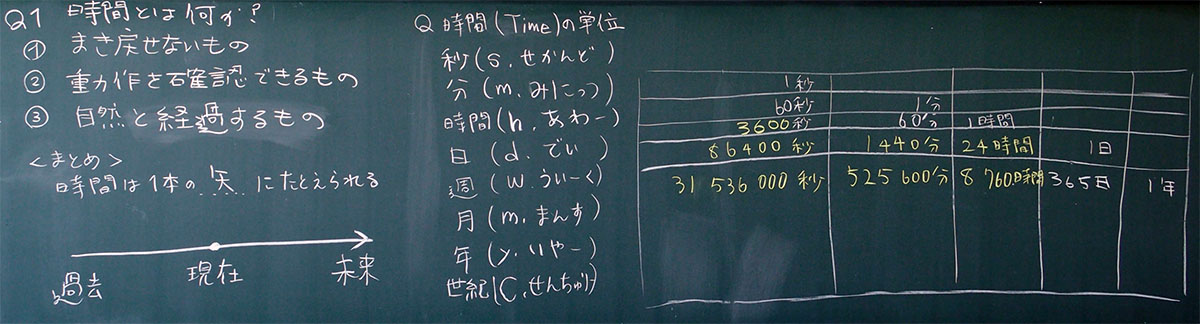 Q1 時間とは何か？
① まき戻せないもの
② 重力作を確認できるもの
③ 自然と経過するもの
<まとめ>
時間は1本の 矢 にたとえられる
過去 現在 未来
Q 時間(Time)の単位
秒(s. せかんど)
分(m. みにっつ)
時間(h. あわー)
日(d. でい)
週(w. ういーく)
月(m. まんす)
年(y. いやー)
世紀(C. せんちゅりー)
1秒
60秒 1分
3600秒 60分 1時間
86400秒 1440分 24時間 1日
31 536 000秒 525 600分 8 760時間 365日 1年